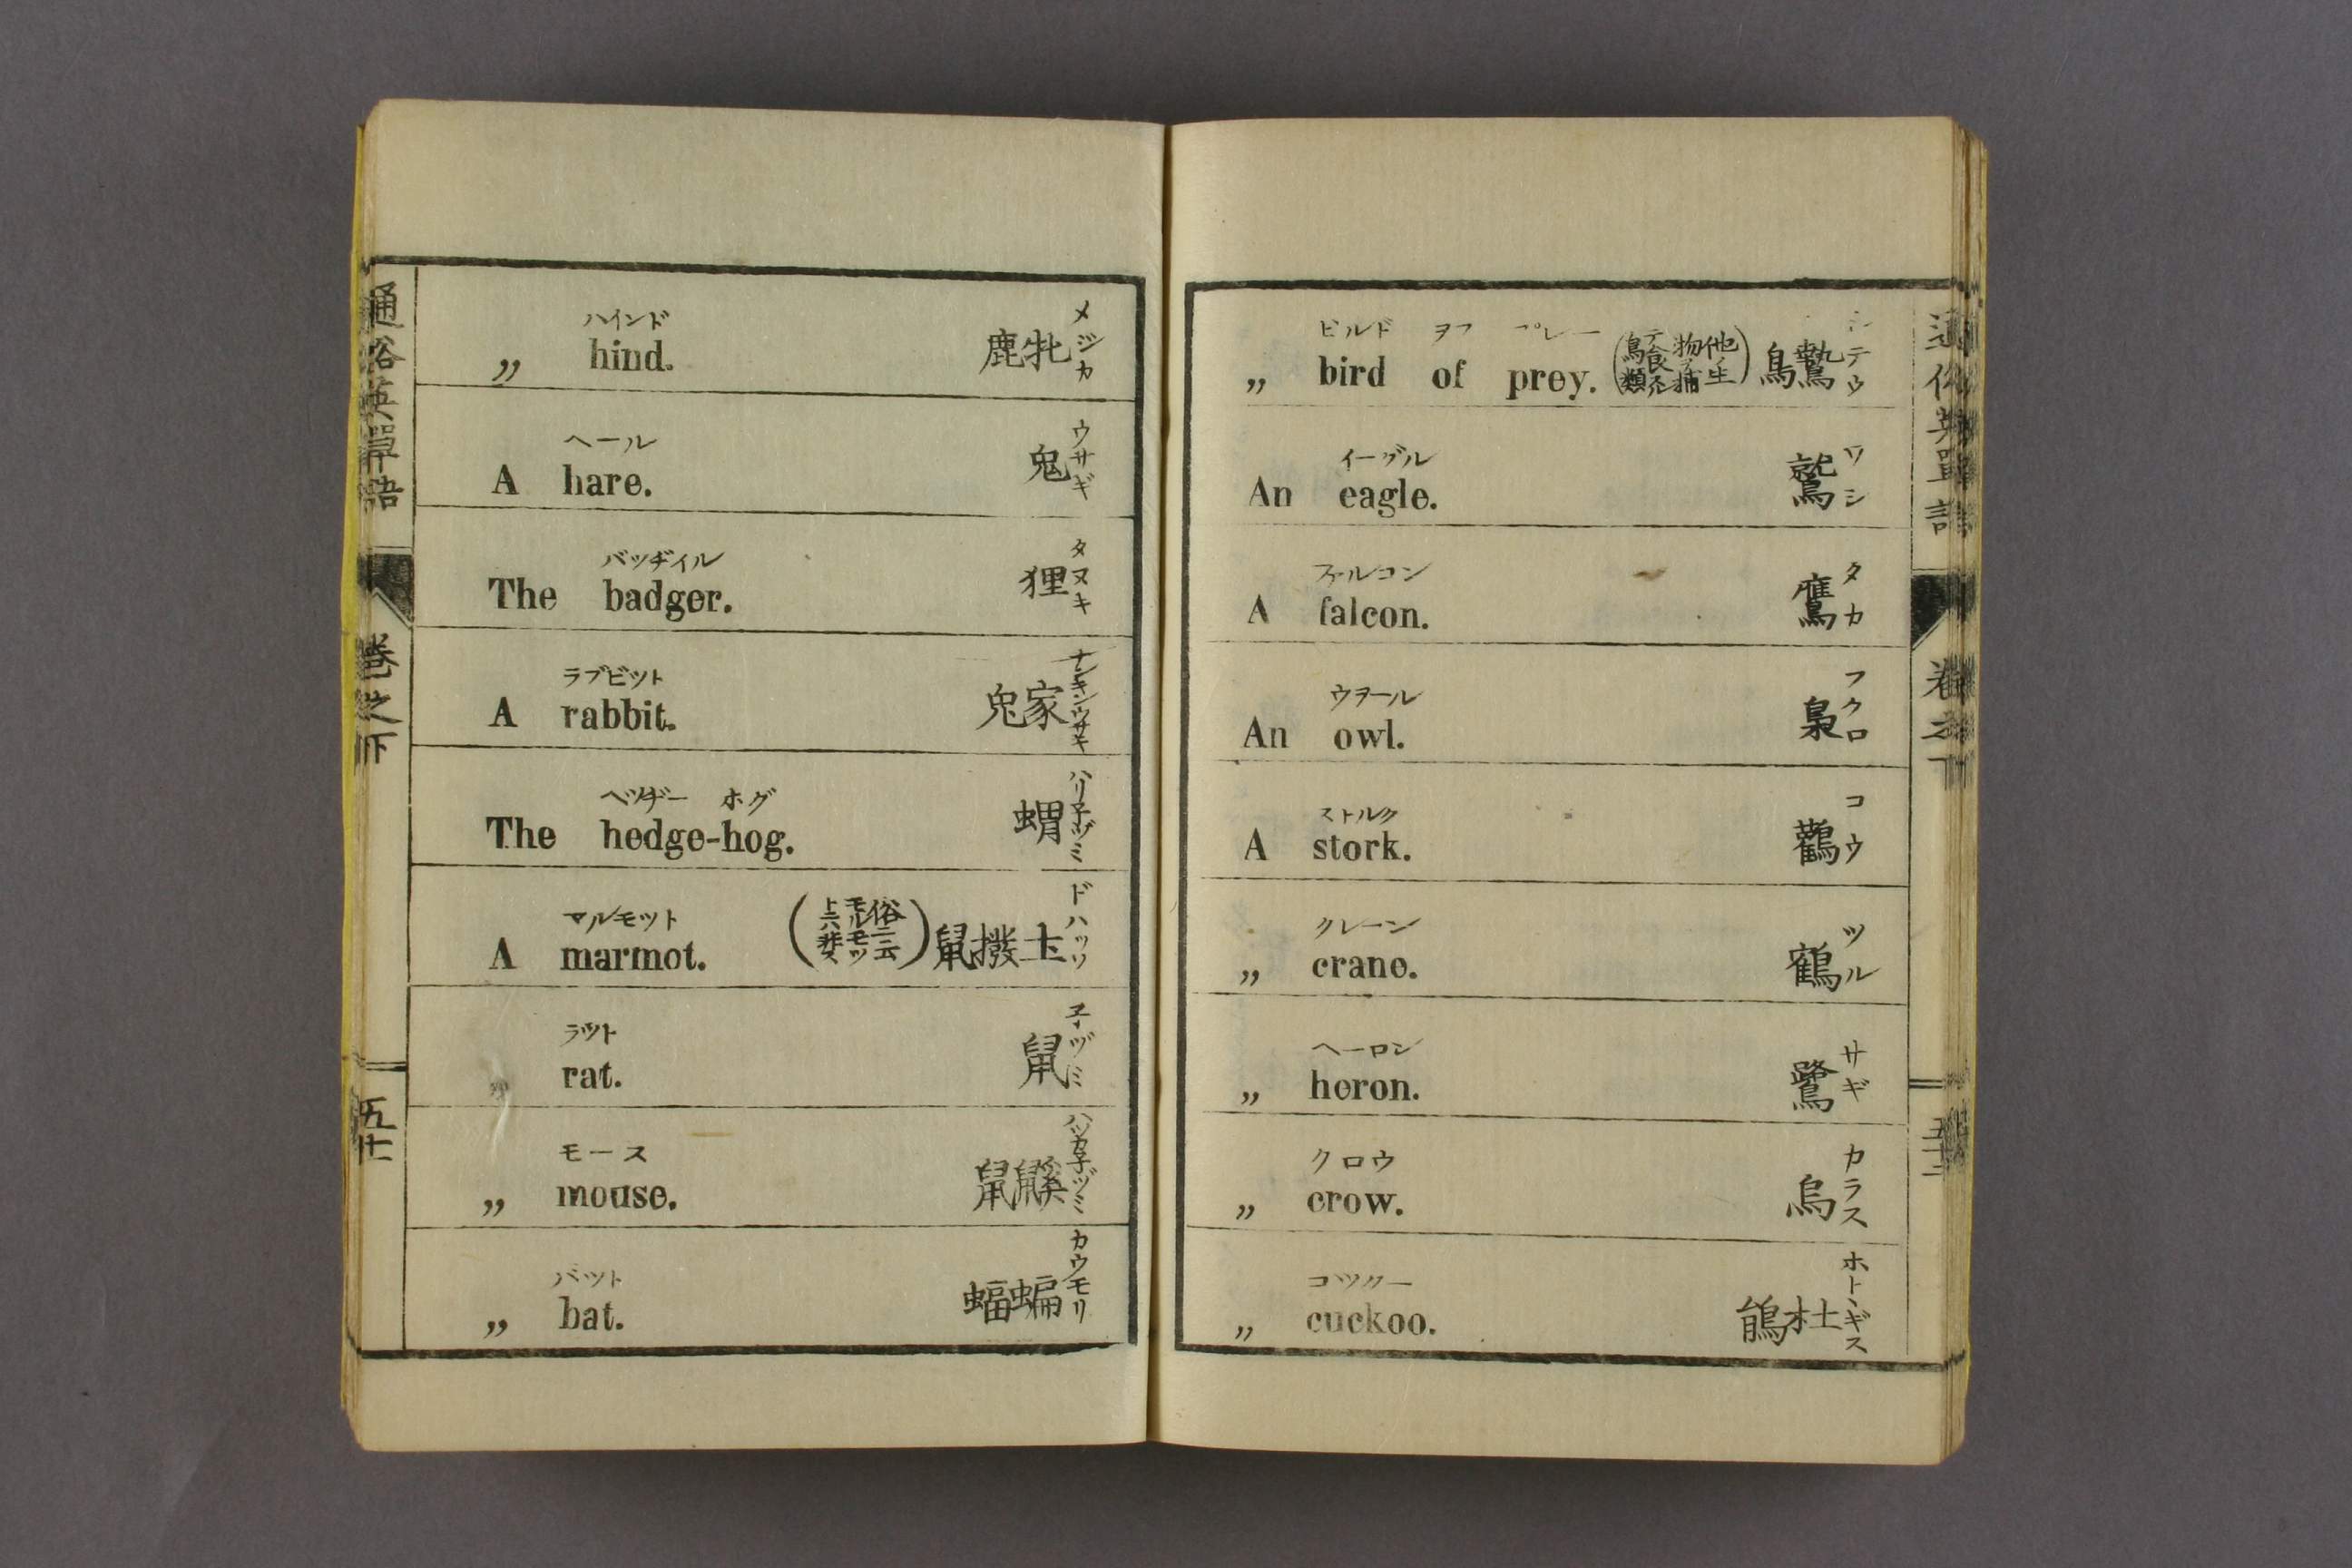 通俗英單語
卷之下
五十一
ハインド
〃 hind. 鹿牝 メジカ
ヘール
A hare. 兎 ウサギ
バッヂイル
The badger. 狸 タヌキ
ラブビット
A rabbit. 兎家 ナンキンウサギ
ヘッヂー ホグ
The hedge-hog. 蝟 ハリ子ヅミ
マルモット
A marmot. (俗ニ云モルモットハ非ス) 鼠撥土 ドハッソ
ラット
〃 rat. 鼠 子ヅミ
モース
〃 mouse. 鼠鼷 ハツカ子ヅミ
バット
〃 bat. 蝠蝙 カウモリ
ビルド ヲフ プレー
〃 bird of prey. (他ノ生物ヲ捕テ食フ鳥類) 鳥鷙 シテウ
イーグル
An eagle. 鷲 ワシ
ファルコン
A falcon. 鷹 タカ
ウヲール
An owl. 梟 フクロ
ストルク
A stork. 鸛 コウ
クレーン
〃 crane. 鶴 ツル
ヘーロン
〃 heron. 鷺 サギ
クロウ
〃 crow. 烏 カラス
コックー
〃 cuckoo. 鵑杜 ホトヽギス
通俗英單語
卷之下
五十二